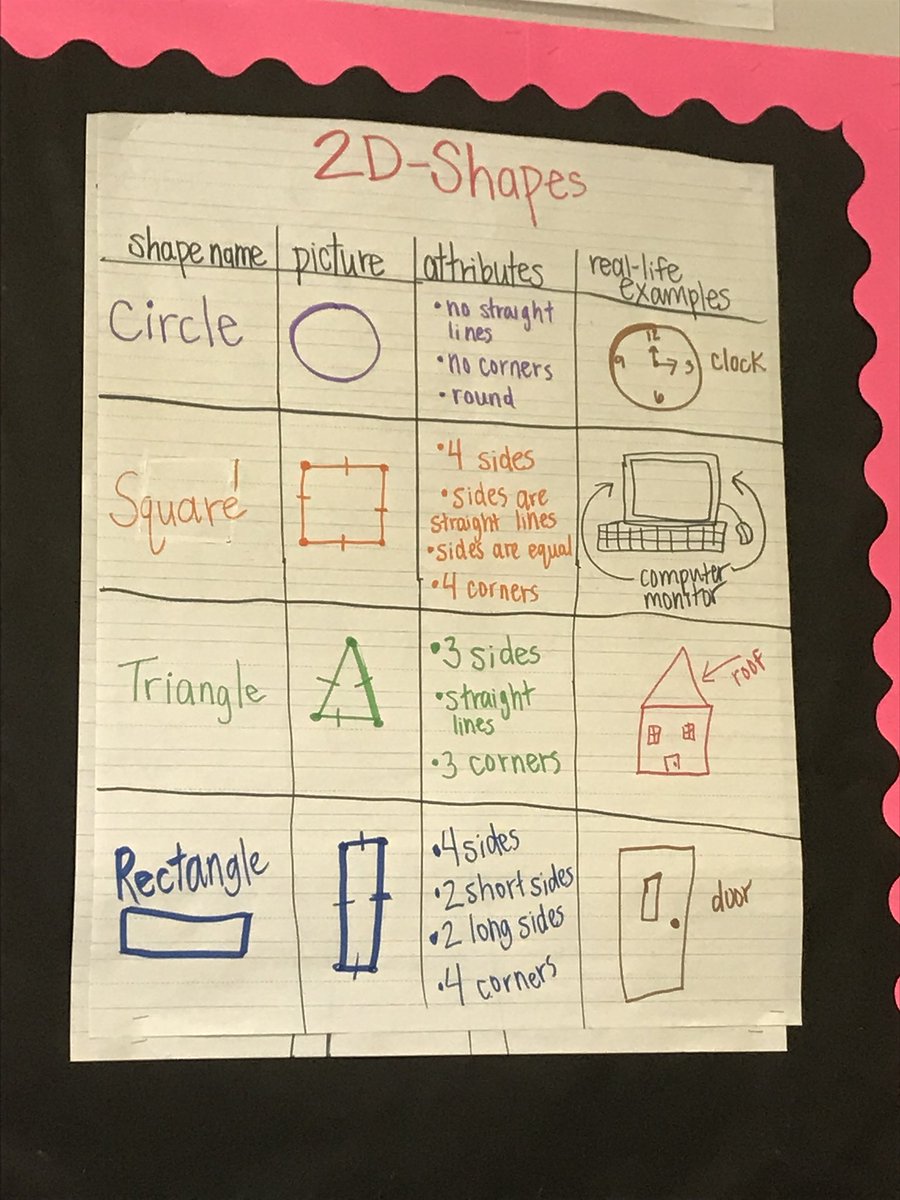 2D-Shapes
shape name picture attributes real-life examples
Circle
•no straight
lines
•no corners
•round
12
9 3
6
clock
Square
•4 sides
•sides are
straight lines
•sides are equal
•4 corners
computer
monitor
Triangle
•3 sides
•straight
lines
•3 corners
roof
Rectangle
•4 sides
•2 short sides
•2 long sides
•4 corners
door